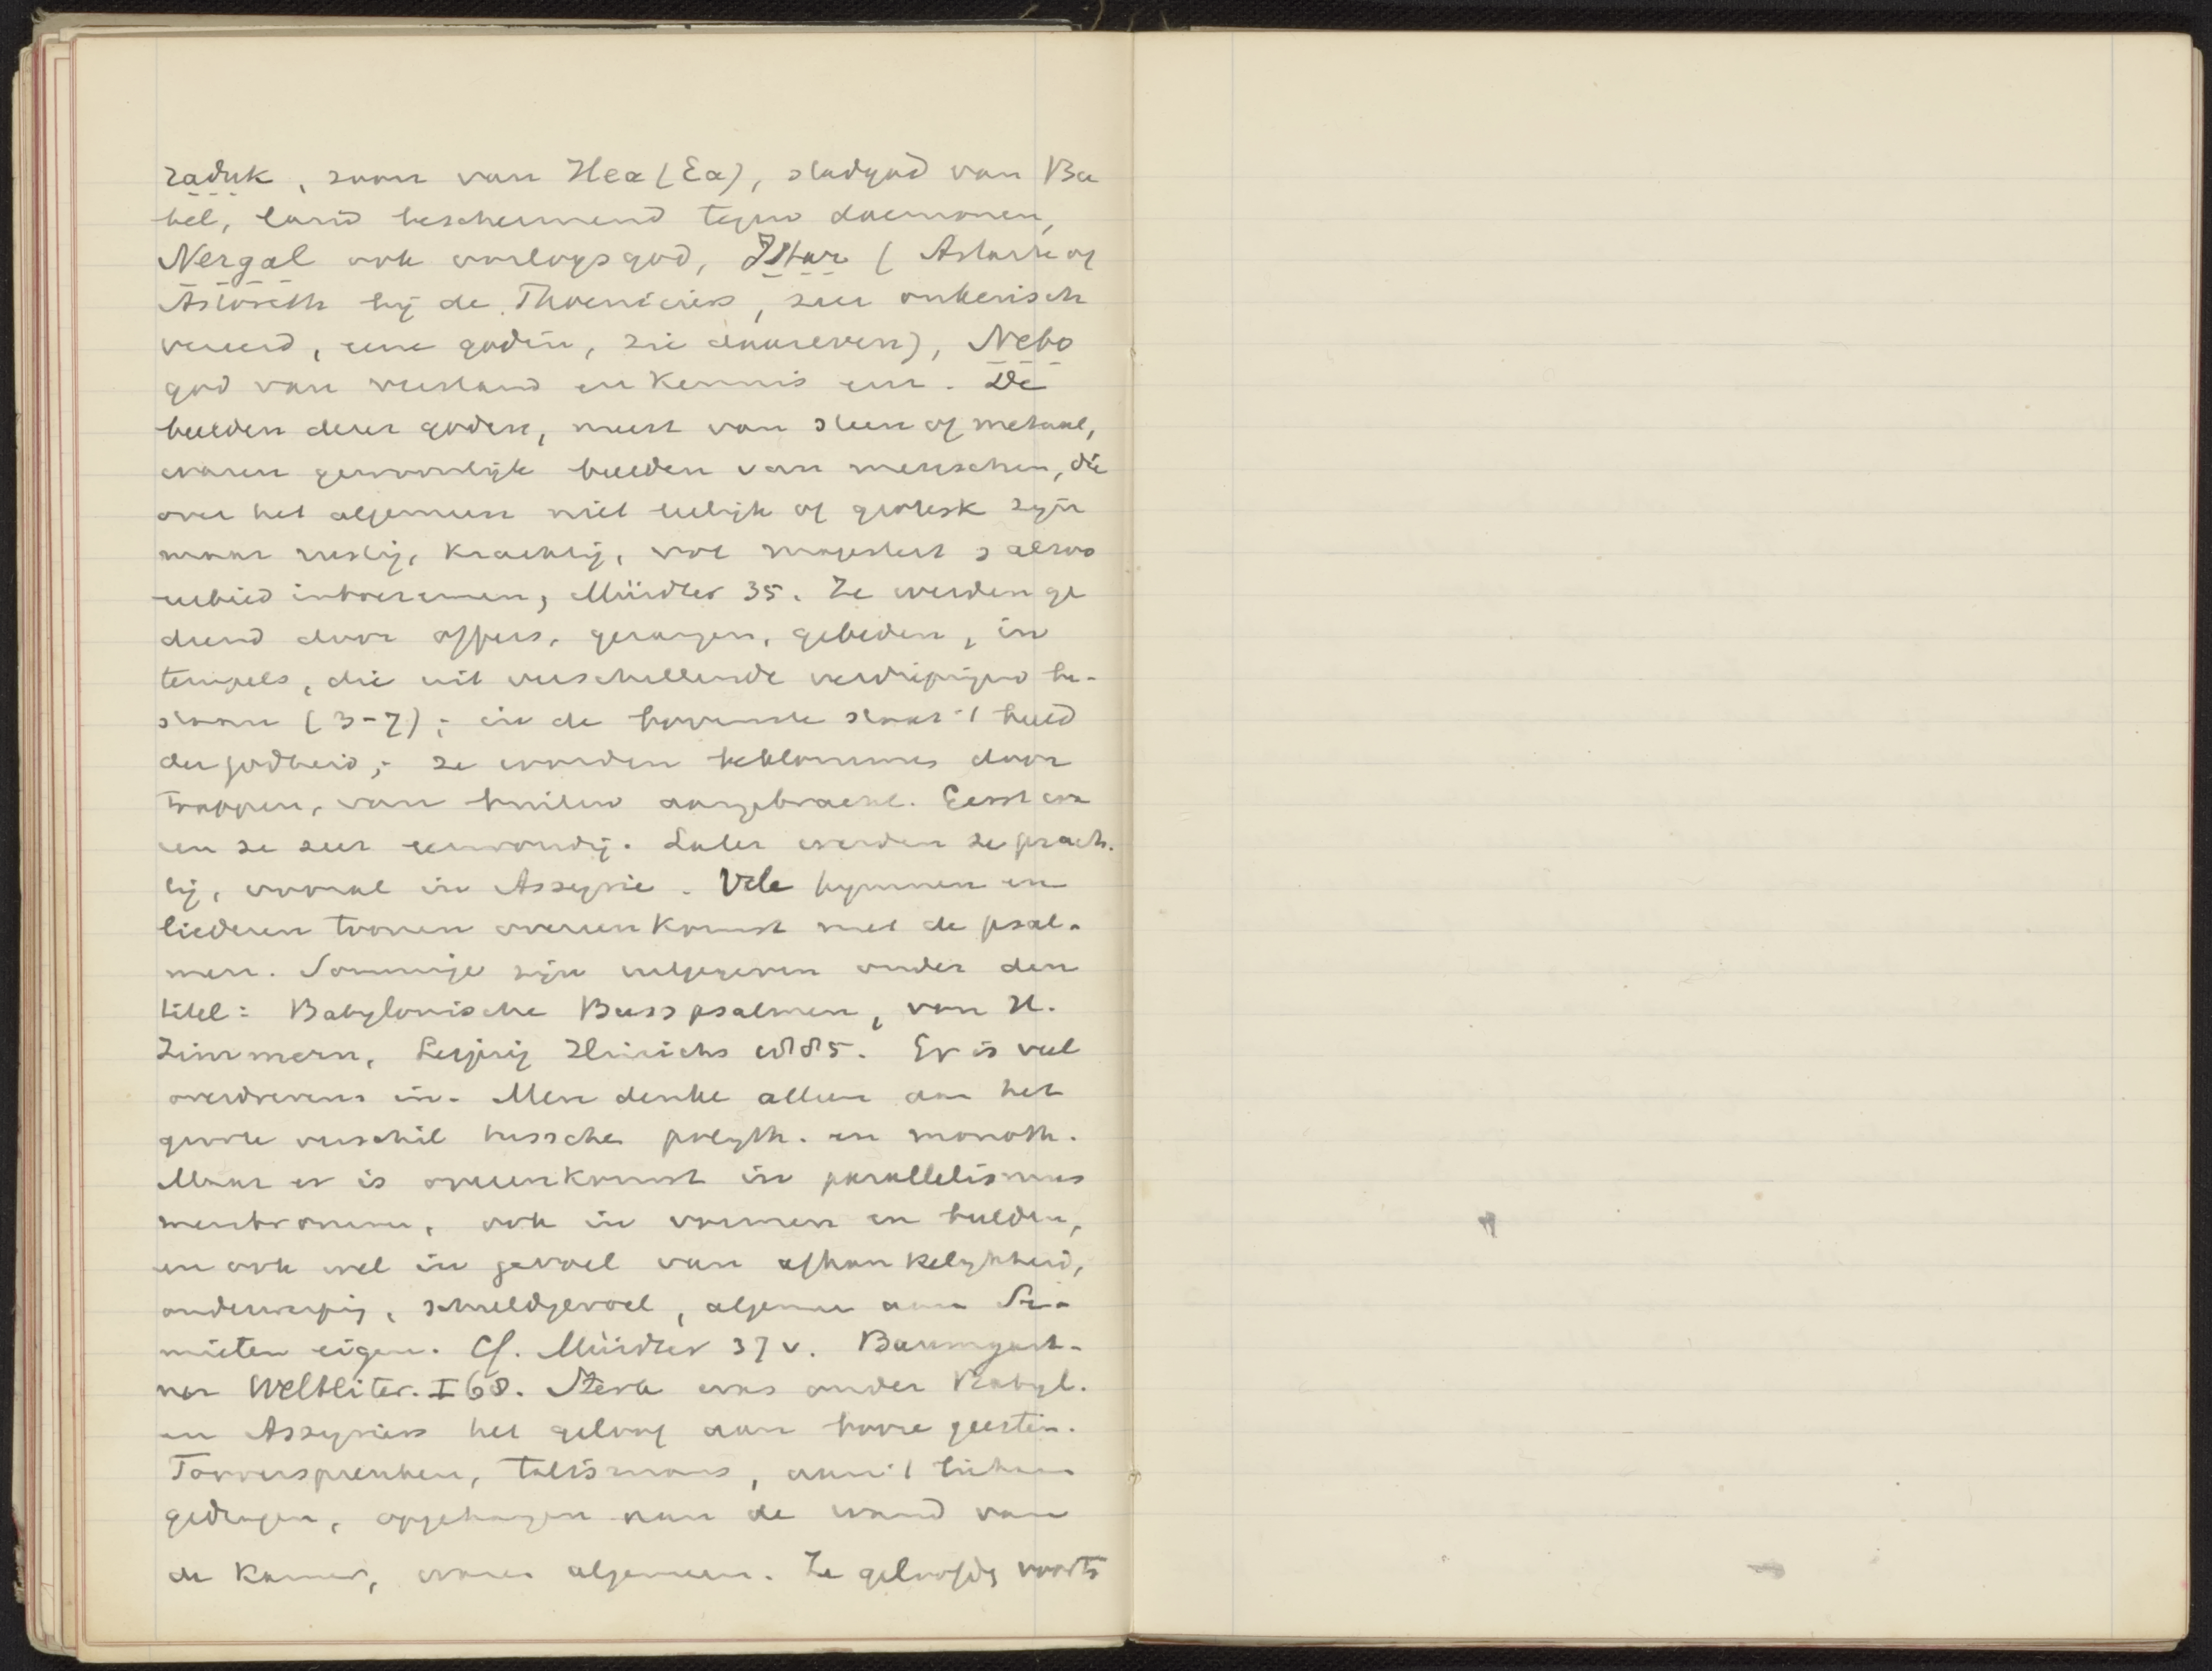 raduk, zoon van Hea (Ea), stadgod van Ba
bel, land beschermend tegen daemonen,
Nergal ook oorlogsgod, Istar (Astarte of
Astoreth bij de Phoeniciers, zeer onkerisch
vereerd, eene godin, zie daareven), Nebo
god van verstand en kennis enz. De
beelden dezer goden, meest van steen of metaal,
waren gewoonlijk beelden van menschen, die
over het algemeen niet leelijk of grotesk zijn
maar rustig, krachtig, vol majesteit & alzoo
eerbied inboezemen, Mürdter 35. Ze werden ge
diend door offers, gezangen, gebeden, in
tempels, die uit verschillende verdiepingen be-
staan (3-7); in de bovenste staat 't beeld
der godheid; ze worden beklommen door
trappen, van buiten aangebracht. Eerst wa
ren ze zeer eenvoudig. Later werden ze prach-
tig, vooral in Assyrie. Vele hymnen en
liederen toonen overeenkomst met de psal-
men. Sommige zijn uitgegeven onder den
titel: Babylonische Busspsalmen, von H.
Zimmern, Leipzig Hinrichs 1885. Er is veel
overdrevens in. Men denke alleen aan het
groote verschil tussche polyth. en monoth.
Maar er is overeenkomst in parallelismus
membrorum, ook in vormen en beelden,
en ook wel in gevoel van afhankelijkheid,
onderwerping, schuldgevoel, algemeen aan Se-
mieten eigen. Cf. Mürdter 37 v. Baumgart-
ner Weltliter. I 68. Sterk was onder Babyl.
en Assyriers het geloof aan booze geesten.
Tooverspreuken, talismans, aan 't lichaam
gedragen, opgehangen aan de wand van
de kamer, waren algemeen. Ze geloofden voorts